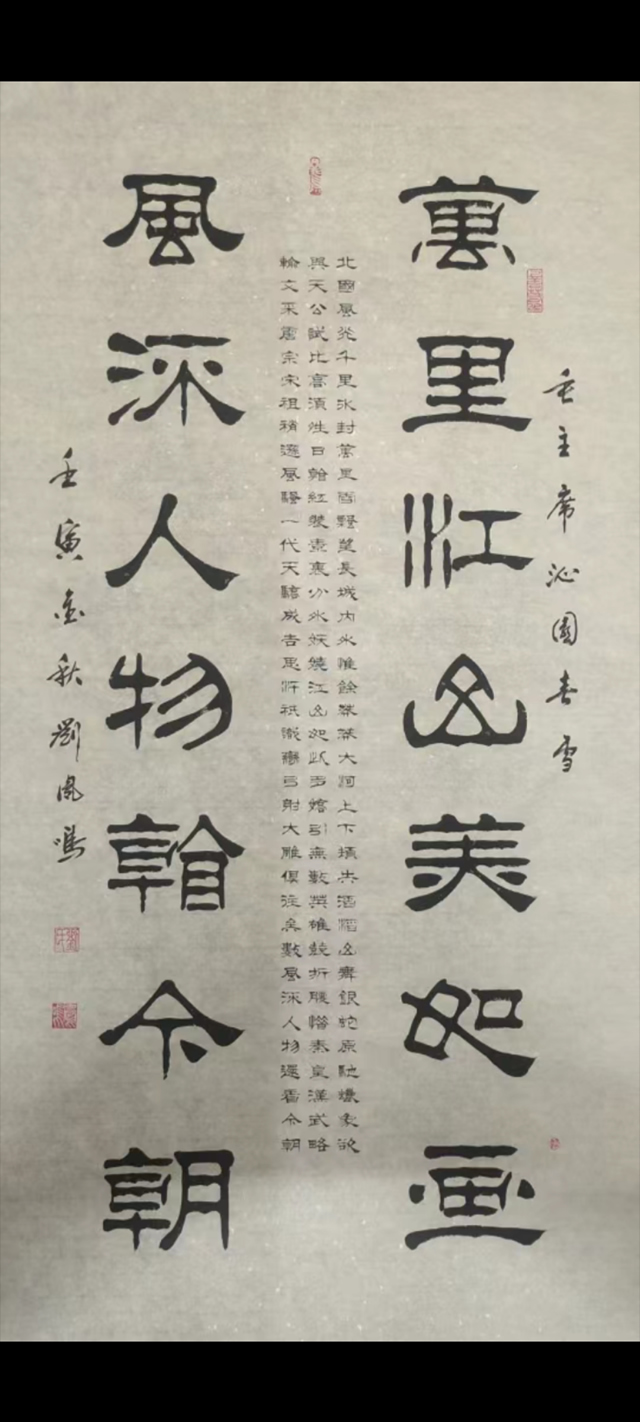 毛主席沁園春雪
萬里江山美如画
北國風光千里冰封萬里雪飄望長城内外惟餘莽莽大河上下頓失滔滔山舞銀蛇原馳蠟象欲
與天公試比高須晴日看紅裝素裹分外妖嬈江山如此多嬌引無數英雄競折腰惜秦皇漢武略
輸文采唐宗宋祖稍遜風騷一代天驕成吉思汗衹識彎弓射大雕俱往矣數風流人物還看今朝
風流人物看今朝
壬寅金秋劉鳳鳴